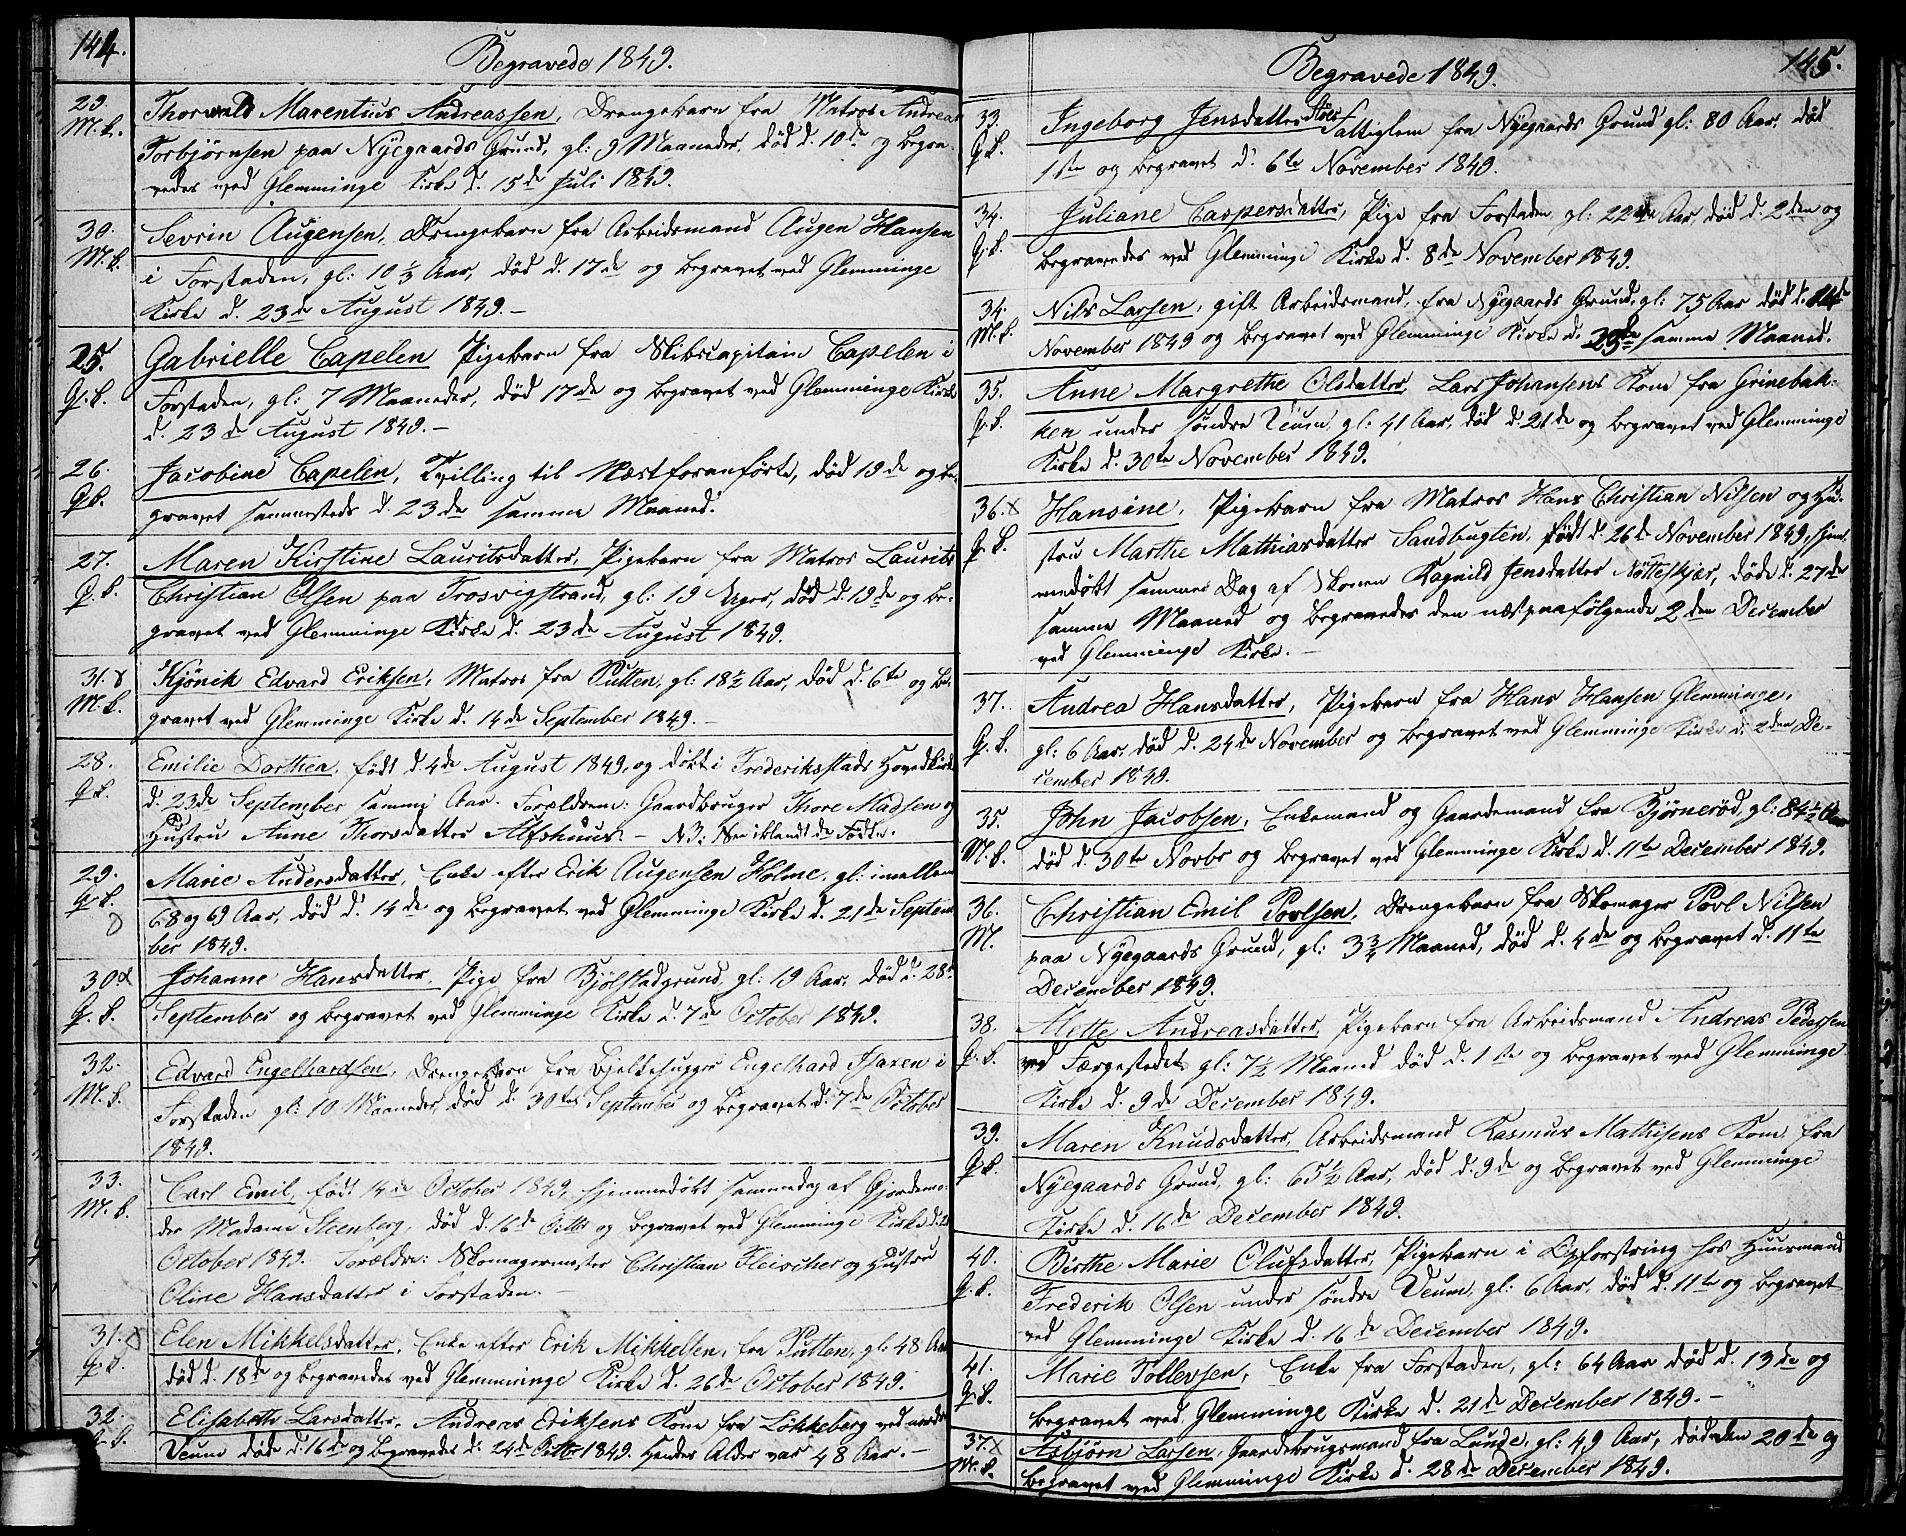 144.
Begravede 1849.
29.
M. K.
Thorwald Marentius Andreassen, Drengebarn fra Matros Andreas
Torbjørnsen paa Nyegaards Grund, gl: 9 Maaneder, død d. 10de og begra-
vedes ved Glemminge Kirke d. 15de Juli 1849.
30.
M. K.
Sevrin Augensen, Drengebarn fra Arbeidsmand Augen Hansen
i Forstaden, gl: 10 ½ Aar, død d. 17de og begravet ved Glemminge
Kirke d. 23de August 1849.-
25.
Q. K.
Gabrielle Capelen Pigebarn fra Skibscapitain Capelen i
Forstaden, gl: 7 Maaneder, død 17de og begravet ved Glemminge Kirke
d. 23de August 1849.-
26.
Q. K.
Jacobine Capelen, Tvilling til Næstforanførte, død 19de og be-
gravet sammesteds d. 23de samme Maaned.
27.
Q. K.
Maren Kirstine Lauritsdatter, Pigebarn fra Matros Laurits
Christian Olsen paa Trosvigstrand, gl: 19 Uger, død d. 19de og be-
gravet ved Glemminge Kirke d. 23de August 1849.
31.
M. K.
Kjønik Edvard Eriksen, Matros fra Putten, gl: 18½ Aar, død d. 6te og be-
gravet ved Glemminge Kirke d. 14de September 1849.-
28.
Q. K.
Emilie Dorthea, født d. 4de August 1849, og døbt i Frederiksstads Hovedkirke
d. 23de September samme Aar. Forældrene: Gaardbruger Thore Madsen og
Hustru Anne Thorsdatter Alfshuus. - NB: Sees iblandt de Fødte.
29.
Q. K.
Marie Andersdatter, Enke efter Erik Augensen Holme, gl: imellem
68 og 69 Aar, død d. 14de og begravet ved Glemminge Kirke d. 21de Septem
ber 1849.
30
Q. K.
Johanne Hansdatter, Pige fra Kjølstadgrund, gl: 19 Aar, død d. 28de
September og begravet ved Glemminge Kirke d. 7de October 1849.
32.
M. K.
Edvard Engelhardsen, Drengebarn fra Bjelkehugger Engelhard Isaxen i
Forstaden gl: 10 Maaneder, død d. 30te September og begravet d. 7de October
1849.
33.
M. K.
Carl Emil, født 14de October 1849, hjemmedøbt sammedag af Gjordemo-
der Madame Steenberg, død d. 16de Octbr og begravet ved Glemminge Kirke d.
October 1849. Forældre: Skomagermester Christian Fleischer og Hustru
Oline Hansdatter i Forstaden.-
31.
Q. K.
Elen Mikkelsdatter, Enke efter Erik Mikkelsen, fra Putten, gl: 48 Aar
død d. 18de og begravedes ved Glemminge Kirke d. 26de October 1849.
32.
Q. K.
Elisabeth Larsdatter, Andreas Eriksens Kone fra Løkkeberg ved nordre
Veum døde d. 16de og begravedes d. 24de Octbr 1849. Hendes Alder var 48 Aar.-
145.
Begravede 1849.
33.
Q. K.
Ingeborg Jensdatter Fattiglem fra Nyegaards Grund gl: 80 Aar, død
1ste og begravet d. 6te November 1849.
34.
Q. K.
Juliane Caspersdatter, Pige fra Forstaden, gl: 22 Aar, død d. 2den og
begravedes ved Glemminge Kirke d. 8de November 1849.
34.
M. K.
Nils Larsen, gift Arbeidsmand, fra Nyegaards Grund, gl: 75 Aar død d. 14de
November 1849 og begravet ved Glemminge Kirke d. 23de samme Maaned.
35.
Q. K.
Anne Margrethe Olsdatter, Lars Johansens Kone fra Grinebak-
ken under søndre Veum, gl: 41 Aar, død d. 21de og begravet ved Glemminge
Kirke d. 30te November 1849.
36.
Q. K.
Hansine, Pigebarn fra Matros Hans Christian Nilsen og Hu-
stru Marthe Mathiasdatter Sandbugten, født d. 26de November 1849, hjem-
medøbt samme Dag af Konen Ragnild Jensdatter Nøtteskjær, døde d. 27de
samme Maaned og begravedes den næstpaafølgende 2den December
ved Glemminge Kirke.-
37.
Q. K.
Andrea Hansdatter, Pigebarn fra Hans Hansen Glemminge,
gl: 6 Aar, død d. 24de November og begravet ved Glemminge Kirke d. 2den De-
cember 1849.
35.
M. K.
John Jacobsen, Enkemand og Gaardmand fra Bjørnerød, gl: 84½ Aar
død d. 30te Novbr og begravet ved Glemminge Kirke d. 11te December 1849.
36.
M.
Christian Emil Povlsen, Drengebarn fra Skomager Povl Nilsen
paa Nyegaards Grund, gl: 3¾ Maaned, død d. 4de og begravet d. 11te
December 1849.
38.
Q. K.
Mette Andreasdatter, Pigebarn fra Arbeidsmand Andreas Pedersen
ved Færgestedet gl: 7½ Maaned død d. 1ste og begravet ved Glemminge
Kirke d. 9de December 1849.
39.
Q. K.
Maren Knudsdatter, Arbeidsmand Rasmus Mathisens Kone, fra
Nyegaards Grund, gl: 65½ Aar, død d. 9de og begravet ved Glemminge
Kirke d. 16de December 1849.
40.
Q. K.
Birthe Marie Olufsdatter, Pigebarn i Opfostring hos Huusmand
Frederik Olsen under søndre Veum, gl: 6 Aar, død d. 11te og begravet
ved Glemminge Kirke d. 16de December 1849.
41.
Q. K.
Marie Tollevsen, Enke fra Forstaden, gl: 64 Aar død d. 13de og
begravet ved Glemminge Kirke d. 21de December 1849.-
37.
M. K.
Asbjørn Larsen, Gaardbrugsmand fra Lunde, gl: 49 Aar, døde den 20de og
begravet ved Glemminge Kirke d. 28de December 1849.